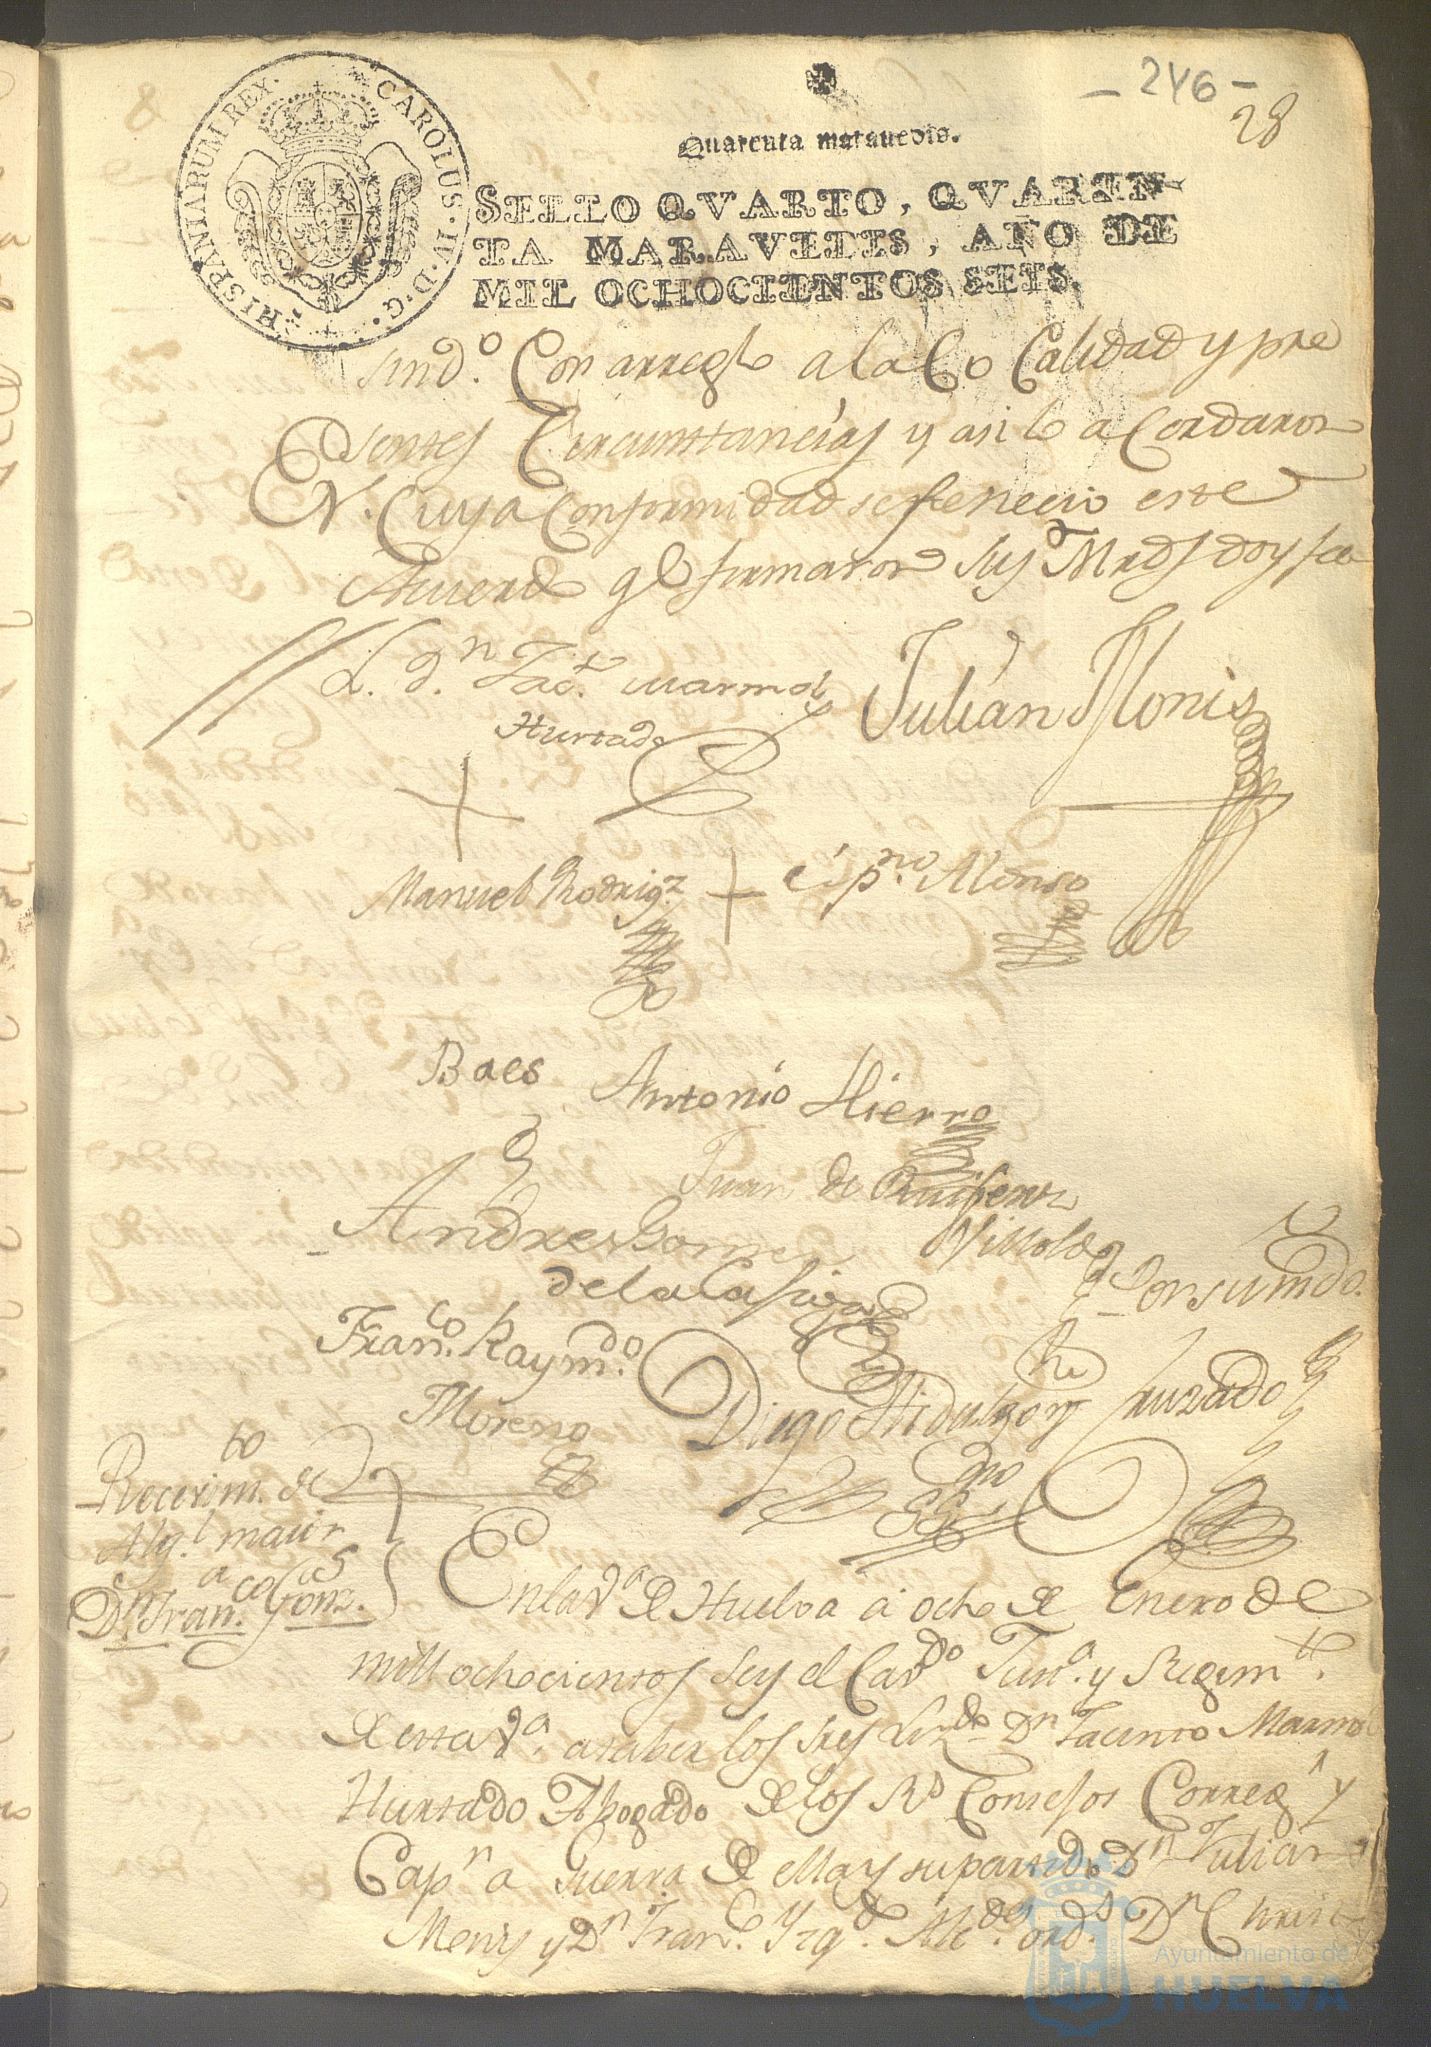 - 246 -
28
HISPANIARUM REX. CAROLUS. IV. D. G.
Quarenta maravedis.
SELLO QVARTO, QVAREN-
TA MARAVEDIS, AÑO DE
MIL OCHOCIENTOS SEIS.
sind.º Con arreglo a la Calidad y pre
sentes Circunstancias y asi lo acordaron
En Cuya Conformidad se fenecio este
Acuerdo q.e lo firmaron sus Mrds doy fee
L. d.n Jac.to Marmol
Hurtado
Julián Monis
Manuel Rodrig.z
Cip.no Alonso
Baes
Antonio Hierro
Juan de
Andres Gomez
de la
Consumido.
Fran.co Raym.do
Moreno
Diego Hidalgo y Jurado
Recevim.to de
Alg.l maior
a
D.n Fran.co Gonz.
En la V.a de Huelva á ocho de Enero de
mill ochocientos seys el Cav.do Just.a y Regim.to
de esta V.a a saber los Sres Lic.do D.n Jacinto Marmol
Hurtado Abogado de los R.s Consejos Correg.r y
Cap.n a Guerra de ella y su partido D.n Julian
Monis y D.n Fran.co Izq.do Alc.des ord.s D.n Christ
Ayuntamiento de
HUELVA